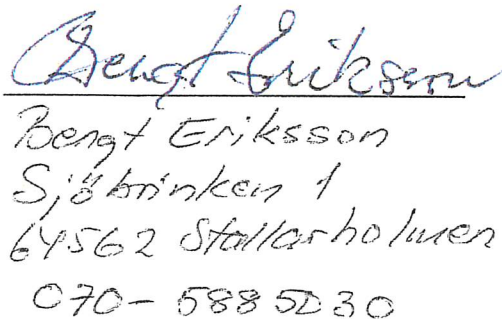 Bengt Eriksson
Bengt Eriksson
Sjöbrinken 1
64562 Stallarholmen
070-5885030